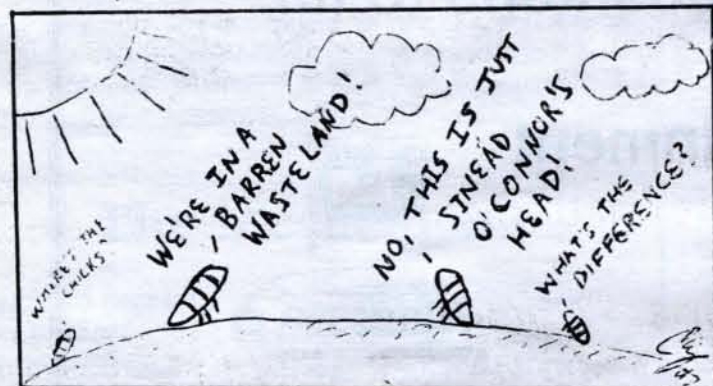 WHERE'S THE
CHICKS?
WE'RE IN A
BARREN
WASTELAND!
NO, THIS IS JUST
SINEAD
O'CONNOR'S
HEAD!
WHAT'S THE
DIFFERENCE?